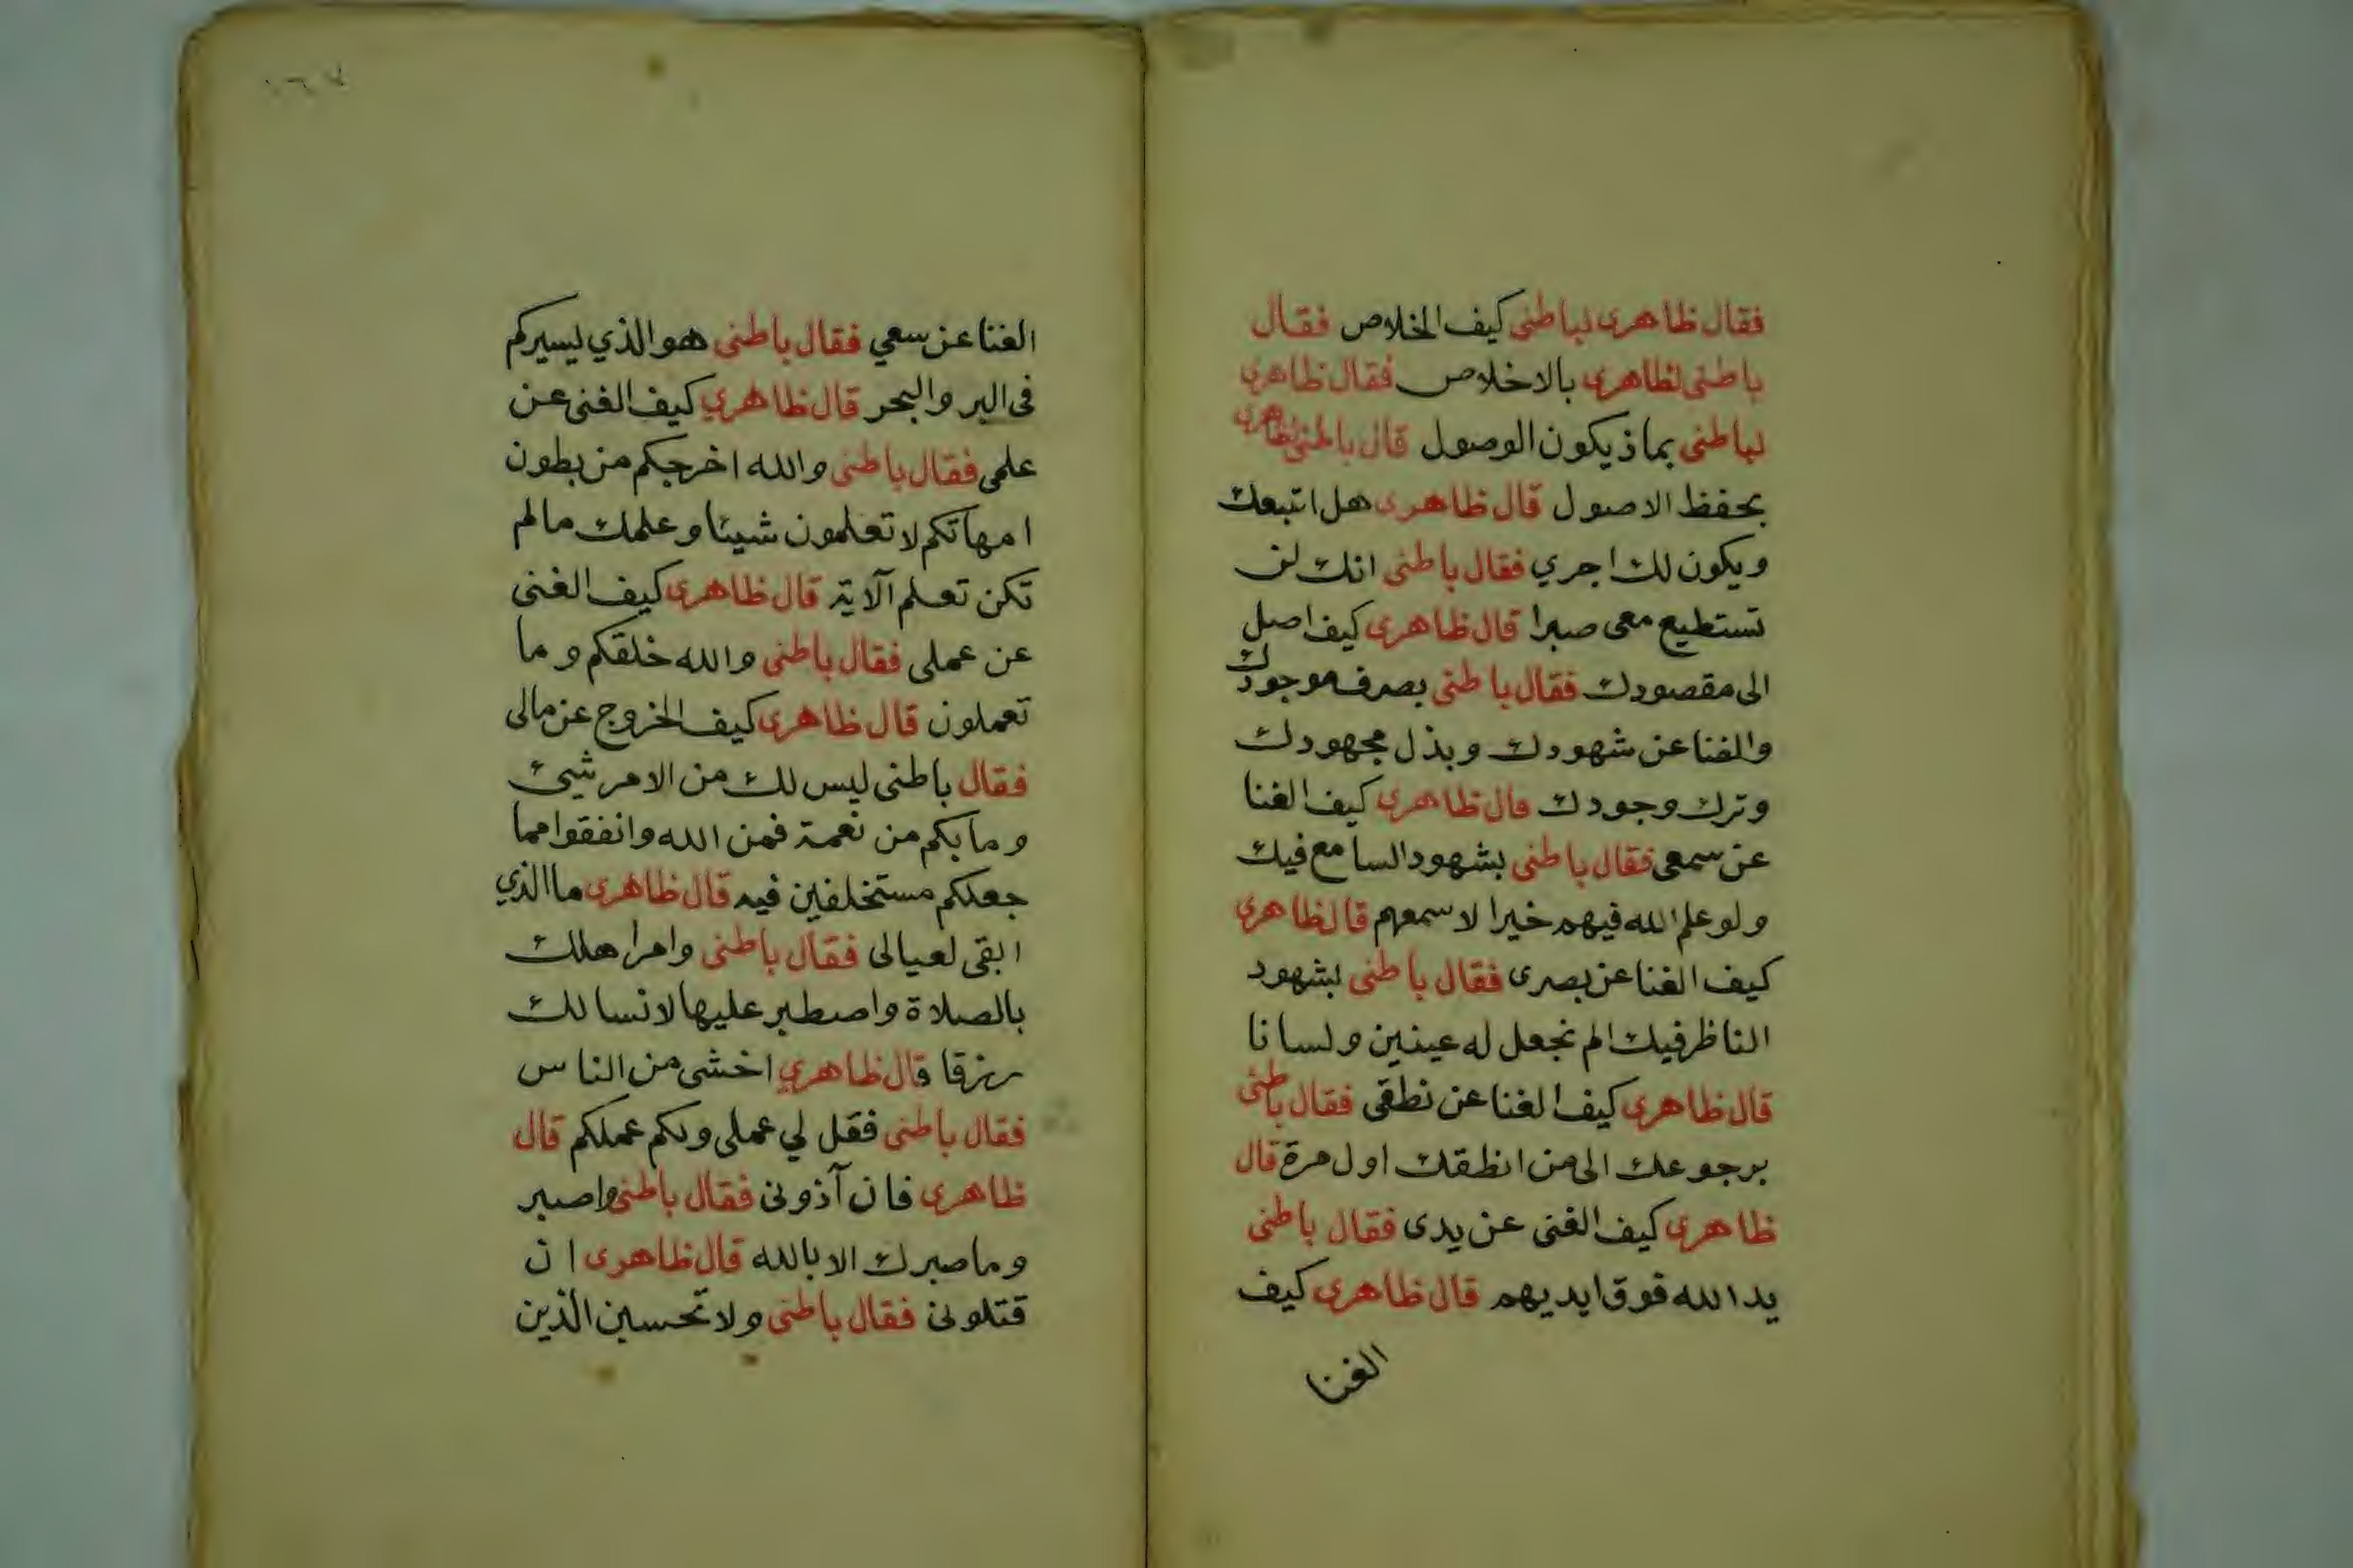 فقال ظاهرى لباطنى كيف الخلاص فقال
باطنى لظاهرى بالاخلاص فقال ظاهرى
لباطنى بماذ يكون الوصول قال باطنى لظاهرى
بحفظ الاصول قال ظاهرى هل اتبعك
ويكون لك اجري فقال باطنى انك لن
تستطيع معى صبرا قال ظاهرى كيف اصل
الى مقصودك فقال باطنى بصرف موجودك
والفنا عن شهودك وبذل مجهودك
وترك وجودك قال ظاهرى كيف الغنا
عن سمعى فقال باطنى بشهود السامع فيك
ولو علم الله فيهم خيرا لاسمعهم قال ظاهرى
كيف الغنا عن بصرى فقال باطنى بشهود
الناظر فيك الم نجعل له عينين ولسانا
قال ظاهرى كيف الغنا عن نطقى فقال باطنى
برجوعك الى من انطقك اول مرة قال
ظاهرى كيف الغنى عن يدى فقال باطنى
يد الله فوق ايديهم قال ظاهرى كيف
الغنا
١٦٧
الغنا عن سعي فقال باطنى هو الذي ليسيركم
فى البر والبحر قال ظاهري كيف الغنى عن
علمى فقال باطنى والله اخرجكم من بطون
امهاتكم لا تعلمون شيئا وعلمك مالم
تكن تعلم آلاية قال ظاهرى كيف الغنى
عن عملى فقال باطنى والله خلقكم وما
تعملون قال ظاهرى كيف الخروج عن مالى
فقال باطنى ليس لك من الامر شيئ
وما بكم من نعمة فمن الله وانفقوا مما
جعلكم مستخلفين فيه قال ظاهرى ما الذي
ابقى لعيالى فقال باطنى وامر اهلك
بالصلاة واصطبر عليها لا نسالك
رزقا قال ظاهري اخشى من الناس
فقال باطنى فقل لي عملى ولكم عملكم قال
ظاهرى فان آذونى فقال باطنى واصبر
وما صبرك الا بالله قال ظاهرى ان
قتلونى فقال باطنى ولا تحسبن الذين